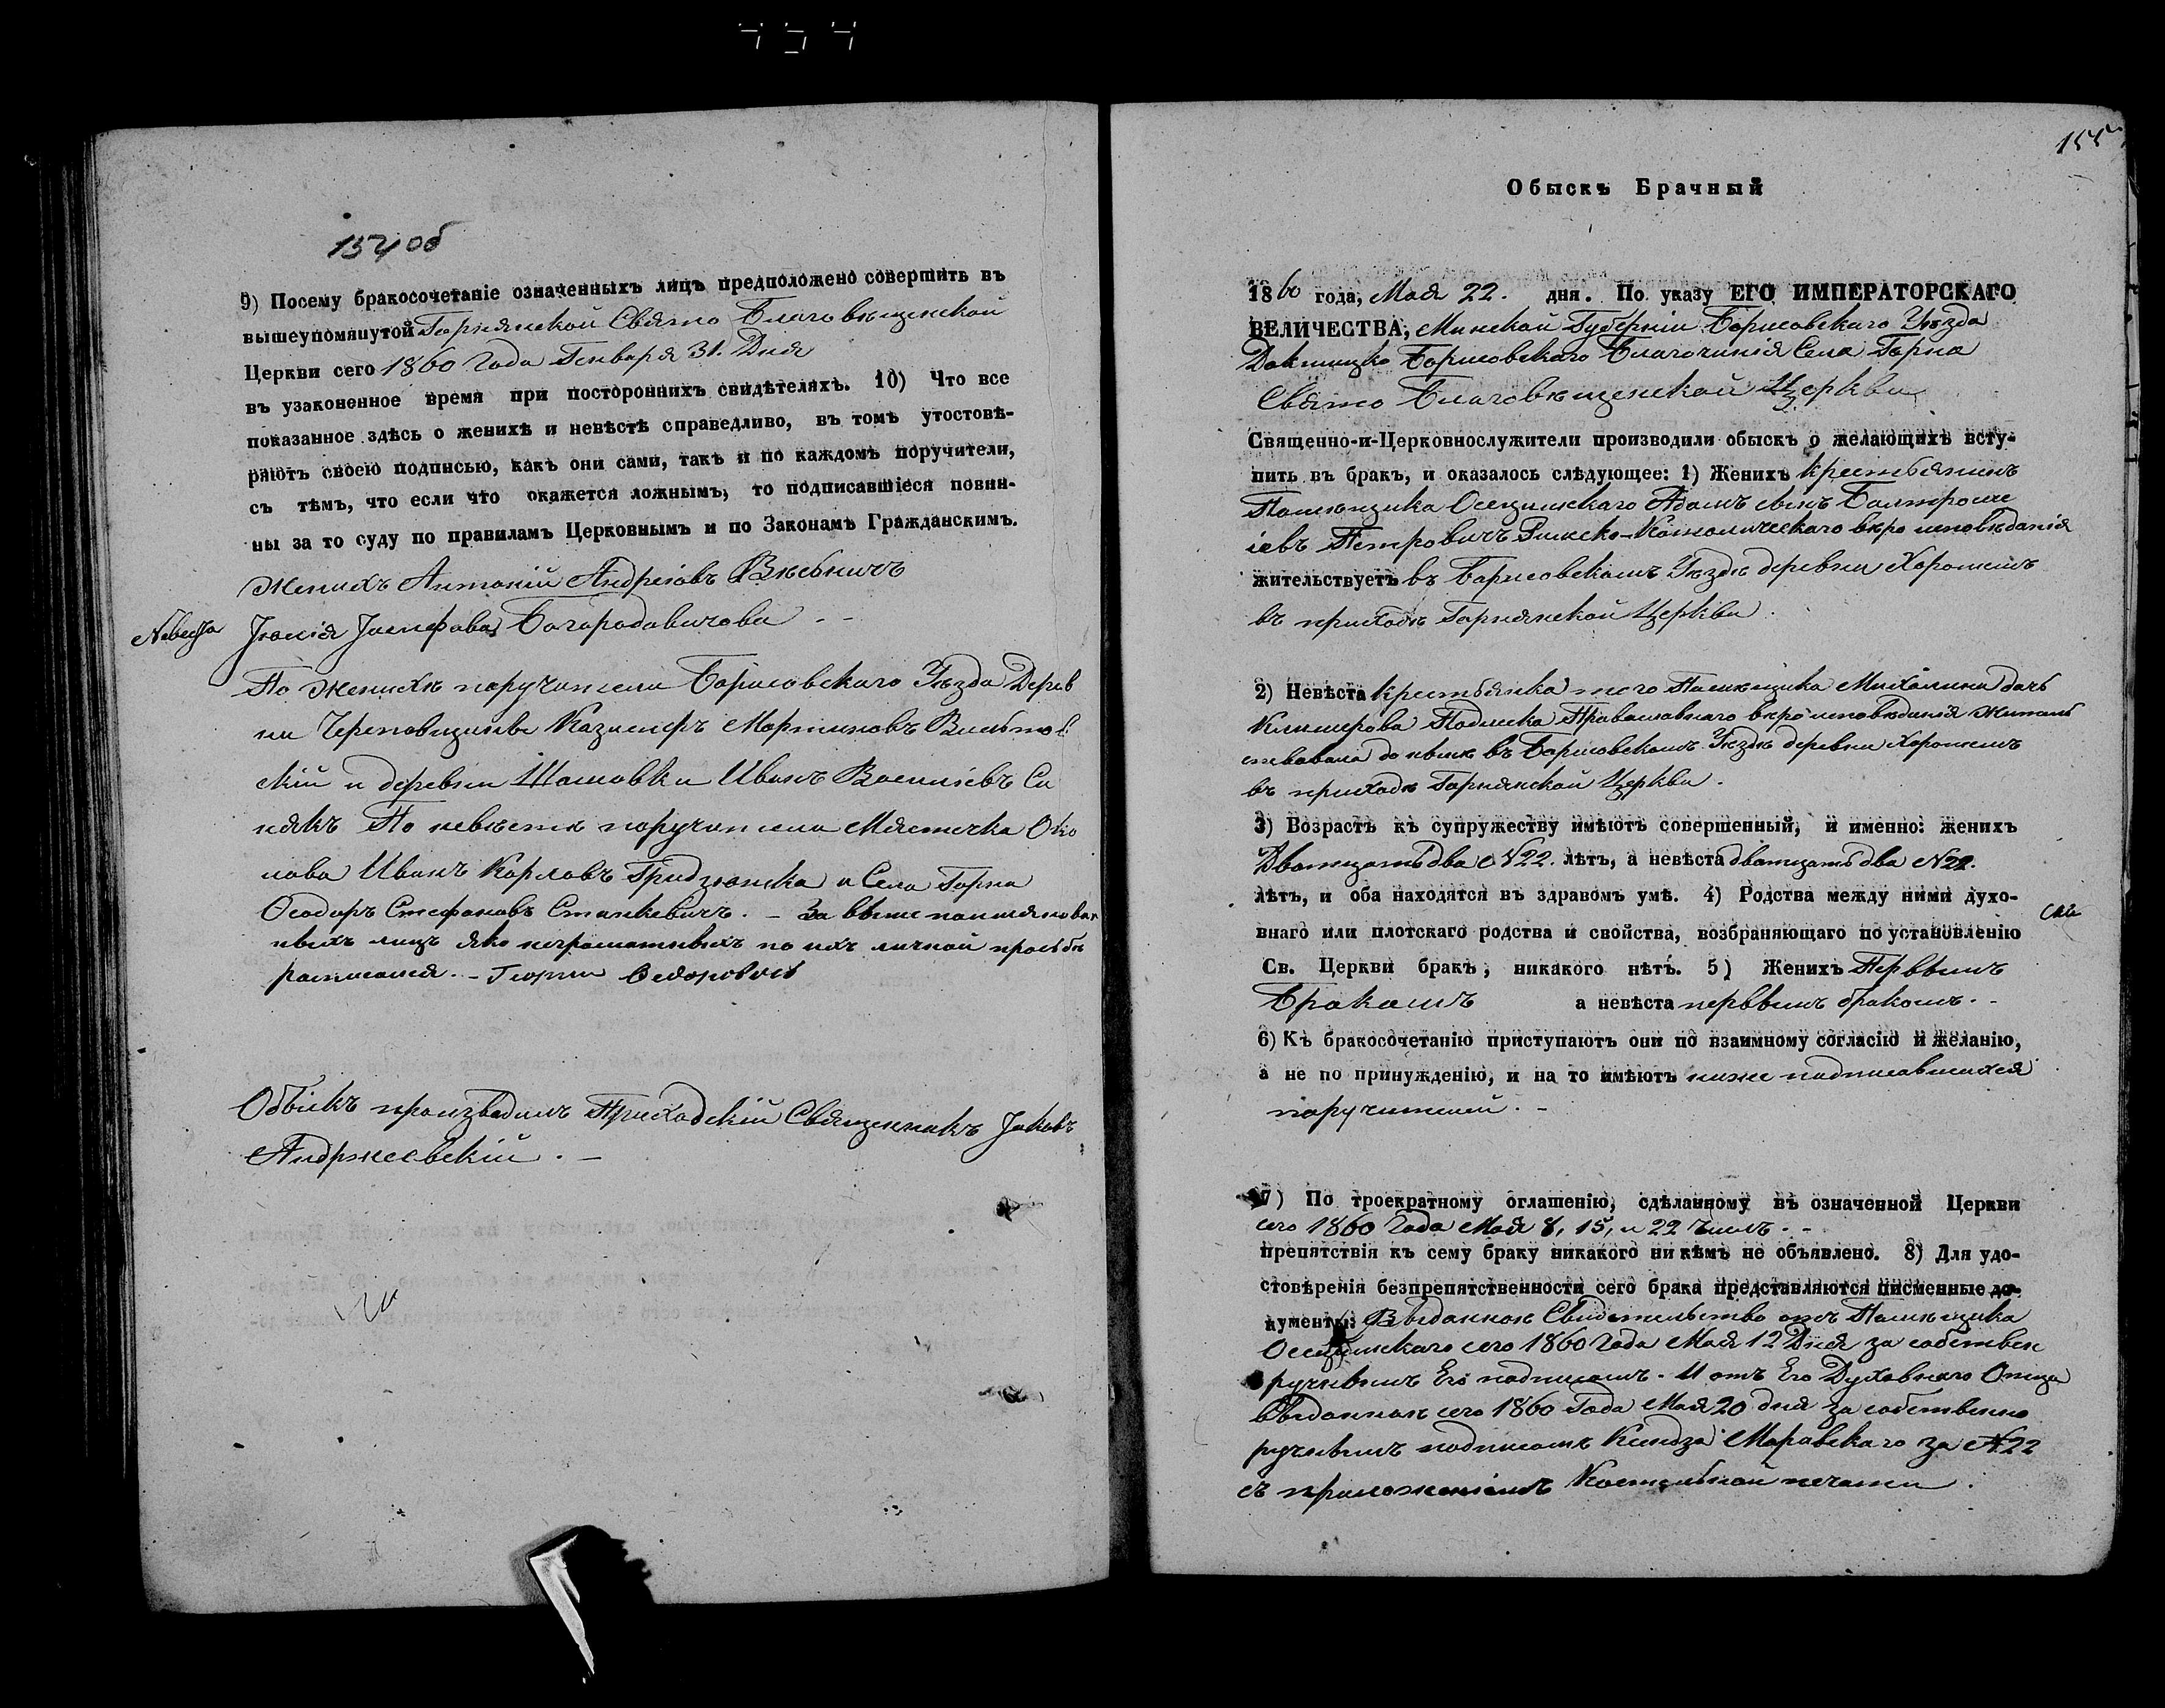 154 об
9) Посему бракосочетаніе означенныхъ лицъ предположено совершить въ
вышеупомянутой Горнянской Свято Благовѣщенской
Церкви сего 1860 года Генваря 31. Дня
въ узаконенное время при постороннихъ свидѣтеляхъ. 10) Что все
показанное здѣсь о женихѣ и невѣстѣ справедливо, въ томъ утостовѣ-
ряютъ своею подписью, какъ они сами, такъ и по каждомъ поручители,
съ тѣмъ, что если что окажется ложнымъ, то подписавшіеся повин-
ны за то суду по правиламъ Церковнымъ и по Законамъ Гражданскимъ.
Женихъ Антоній Андреіовъ
Невеста Юлія Іосифова Багародовичова
По женихѣ поручители Борисовскаго Уѣзда Дерев
ни Казимеръ Мартиновъ
скій и деревни Шашовки Иванъ Василіевъ Си
някъ По невѣстѣ поручители Мястечка Око
лова Иванъ Карловъ и Села Горна
Ѳеодоръ Стефановъ Станкевичъ. – За выше поимянован
ныхъ лицъ яко неграматныхъ по ихъ личной прозьбѣ
расписался. – Георги
Обыскъ производилъ Приходскій Священникъ Іаковъ
Андржеевскій. –
155
Обыскъ Брачный
1860 года, Мая 22. дня. По указу ЕГО ИМПЕРАТОРСКАГО
ВЕЛИЧЕСТВА, Минской Губерніи Борисовскаго Уѣзда
Докшицко Борисовскаго Благочинія Села Горна
Свято Благовѣщенской Церкви
Священно-и-Церковнослужители производили обыскъ о желающихъ всту-
пить въ бракъ, и оказалось слѣдующее: 1) Женихъ крестьянинъ
Помѣщика Осецимскаго Адамъ сынъ Балтроме
іевъ Петровичъ Римско-Католическаго вѣро исповѣданія
жительствуетъ въ Борисовскомъ Уѣздѣ деревни Хорошемъ
въ приходѣ Горнянской Церкви.
2) Невѣста крестьянка того Помѣщика Михалина дочь
Климерова Православнаго вѣро исповѣданія житель
ствовала до нынѣ въ Борисовскомъ Уѣздѣ деревни Хорошемъ
въ приходѣ Горнянской Церкви.
3) Возрастъ къ супружеству имѣютъ совершенный, и именно: женихъ
Дватцать два №22. лѣтъ, а невѣста дватцать два №22.
лѣтъ, и оба находятся въ здравомъ умѣ. 4) Родства между ними духо-
внаго или плотскаго родства и свойства, возбраняющаго по установленію
Св. Церкви бракъ, никакого нѣтъ. 5) Женихъ Первымъ
Бракомъ а невѣста первымъ бракомъ. –
6) Къ бракосочетанію приступаютъ они по взаимному согласію и желанію,
а не по принужденію, и на то имѣютъ ниже подписавшихся
поручителей. –
7) По троекратному оглашенію, сдѣланному въ означенной Церкви
сего 1860 Года Мая 8, 15, и 22 Числъ. –
препятствія къ сему браку никакого ни кѣмъ не объявлено. 8) Для удо-
стовѣренія безпрепятственности сего брака представляются писменные до-
кументы: Выданное Свидѣтельство отъ Помѣщика
Осецимскаго сего 1860 Года Мая 12 Дня за собствен
ручнымъ Его подписомъ. И отъ Его Духовнаго Отца
выданное сего 1860 Года Мая 20 дня за собственно
ручнымъ подписомъ Ксендза Маравскаго за №22
съ приложеніемъ Костельной печати.